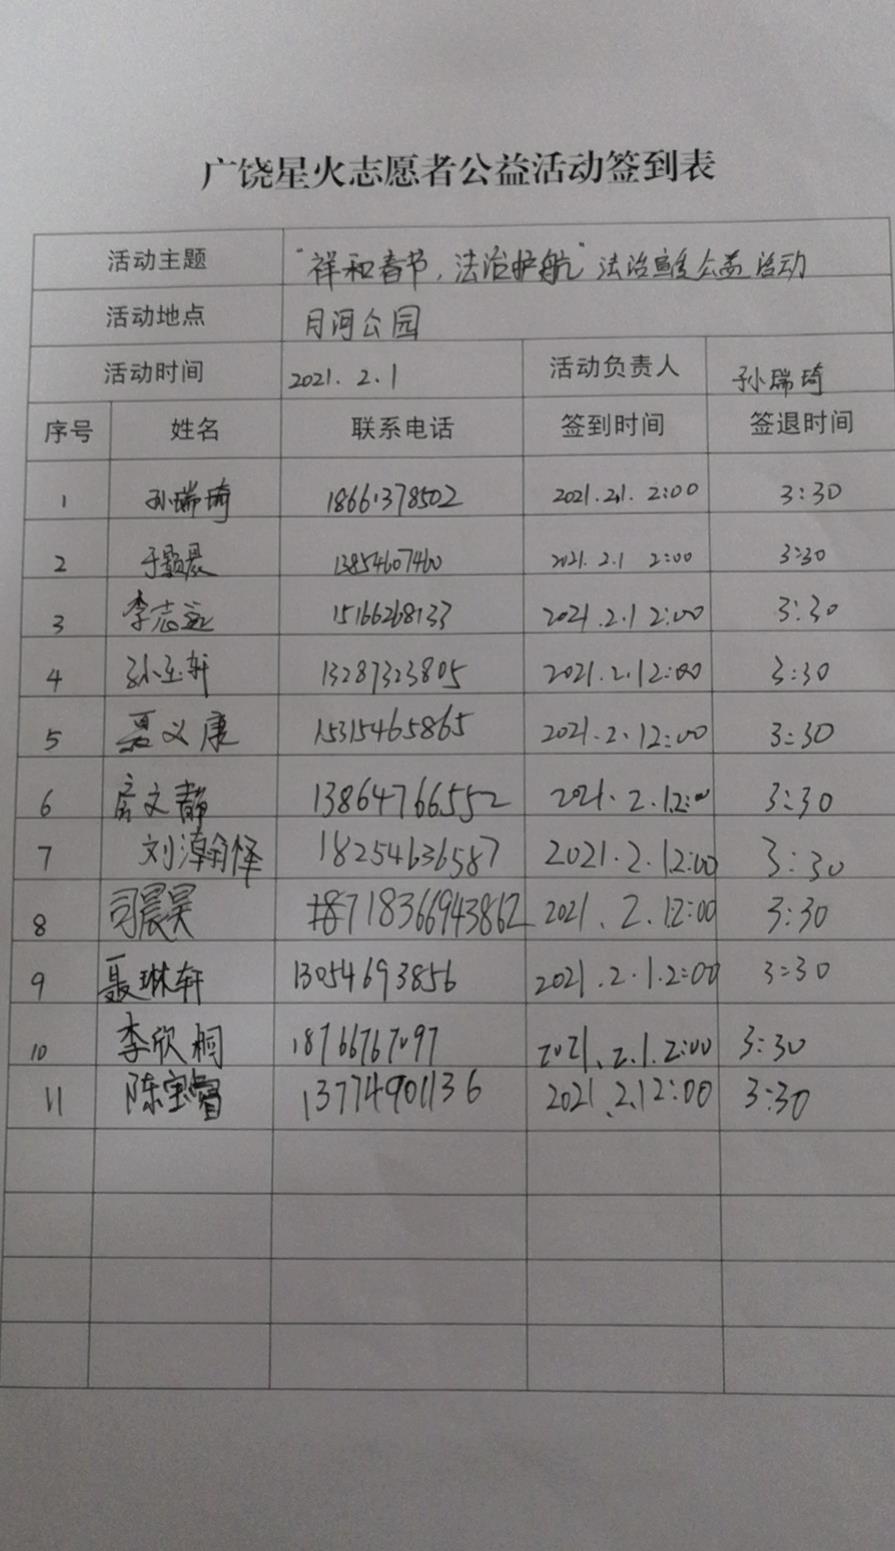 广饶星火志愿者公益活动签到表
活动主题 "祥和春节,法治护航"法治宣传公益活动
活动地点 月河公园
活动时间 2021.2.1 活动负责人 孙瑞琦
序号 姓名 联系电话 签到时间 签退时间
1 孙瑞琦 18661378502 2021.2.1. 2:00 3:30
2 于颢晨 13854607460 2021.2.1 2:00 3:30
3 李志远 15166268133 2021.2.1 2:00 3:30
4 孙玉轩 13287323805 2021.2.1 2:00 3:30
5 聂义康 15315465865 2021.2.1 2:00 3:30
6 房文静 13864766552 2021.2.1 2:00 3:30
7 刘瀚怿 18254636587 2021.2.1 2:00 3:30
8 司晨昊 18366943862 2021.2.1 2:00 3:30
9 聂琳轩 13054693856 2021.2.1.2:00 3:30
10 李欣桐 18766767097 2021.2.1.2:00 3:30
11 陈宝睿 13774901136 2021.2.1 2:00 3:30